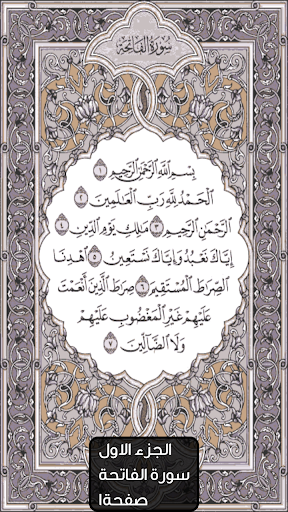 سُورَةُ الفَاتِحَة
بِسْمِ اللَّهِ الرَّحْمَٰنِ الرَّحِيمِ ١
الْحَمْدُ لِلَّهِ رَبِّ الْعَالَمِينَ ٢
الرَّحْمَٰنِ الرَّحِيمِ ٣ مَالِكِ يَوْمِ الدِّينِ ٤
إِيَّاكَ نَعْبُدُ وَإِيَّاكَ نَسْتَعِينُ ٥ اهْدِنَا
الصِّرَاطَ الْمُسْتَقِيمَ ٦ صِرَاطَ الَّذِينَ أَنْعَمْتَ
عَلَيْهِمْ غَيْرِ الْمَغْضُوبِ عَلَيْهِمْ
وَلَا الضَّالِّينَ ٧
الجزء الاول
سورة الفاتحة
صفحة1